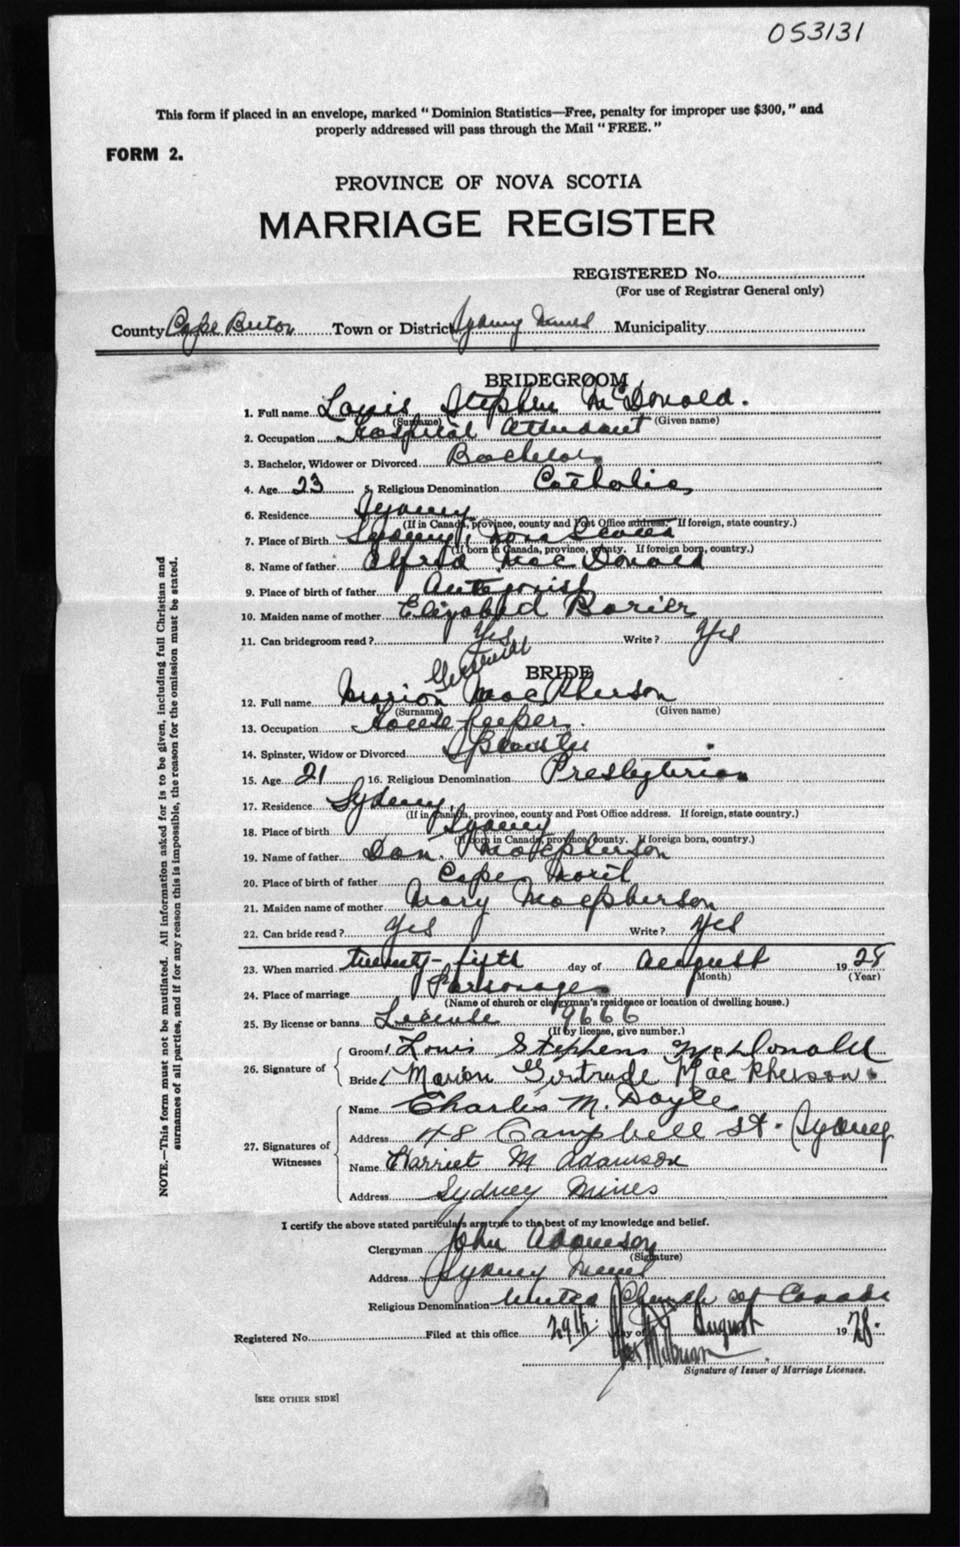 053131
This form if placed in an envelope, marked "Dominion Statistics—Free, penalty for improper use $300," and
properly addressed will pass through the Mail "FREE."
FORM 2.
PROVINCE OF NOVA SCOTIA
MARRIAGE REGISTER
REGISTERED No.
(For use of Registrar General only)
County Cape Breton Town or District Sydney Mines Municipality
BRIDEGROOM
1. Full name Louis Stephen McDonald.
(Surname) (Given name)
2. Occupation Hospital Attendant
3. Bachelor, Widower or Divorced Bachelor
4. Age 23 5. Religious Denomination Catholic
6. Residence Sydney
(If in Canada, province, county and Post Office address. If foreign, state country.)
7. Place of Birth Sydney, Nova Scotia
(If born in Canada, province, county. If foreign born, country.)
8. Name of father Alfred MacDonald
9. Place of birth of father Antigonish
10. Maiden name of mother
11. Can bridegroom read? Yes Write? Yes
BRIDE
Gertrude
12. Full name Marion MacPherson
(Surname) (Given name)
13. Occupation Housekeeper.
14. Spinster, Widow or Divorced Spinster
15. Age 21 16. Religious Denomination Presbyterian
17. Residence Sydney
(If in Canada, province, county and Post Office address. If foreign, state country.)
18. Place of birth Sydney
(If born in Canada, province, county. If foreign born, country.)
19. Name of father Dan. Macpherson
20. Place of birth of father Cape North
21. Maiden name of mother Mary Macpherson
22. Can bride read? Yes Write? Yes
23. When married twenty-fifth day of August 1928
(Month) (Year)
24. Place of marriage Parsonage
(Name of church or clergyman's residence or location of dwelling house.)
25. By license or banns License 9666
(If by license, give number.)
26. Signature of
Groom Louis Stephens McDonald
Bride Marion Gertrude MacPherson.
27. Signatures of Witnesses
Name Charlis M. Doyle
Address 48 Campbell St. Sydney
Name Harriet M Adamson
Address Sydney Mines
I certify the above stated particulars are true to the best of my knowledge and belief.
Clergyman John Adamson
(Signature)
Address Sydney Mines
Religious Denomination United Church of Canada
Registered No. Filed at this office 29th day of August 1928.
Signature of Issuer of Marriage Licenses.
[SEE OTHER SIDE]
NOTE.—This form must not be mutilated. All information asked for is to be given, including full Christian and
surnames of all parties, and if for any reason this is impossible, the reason for the omission must be stated.